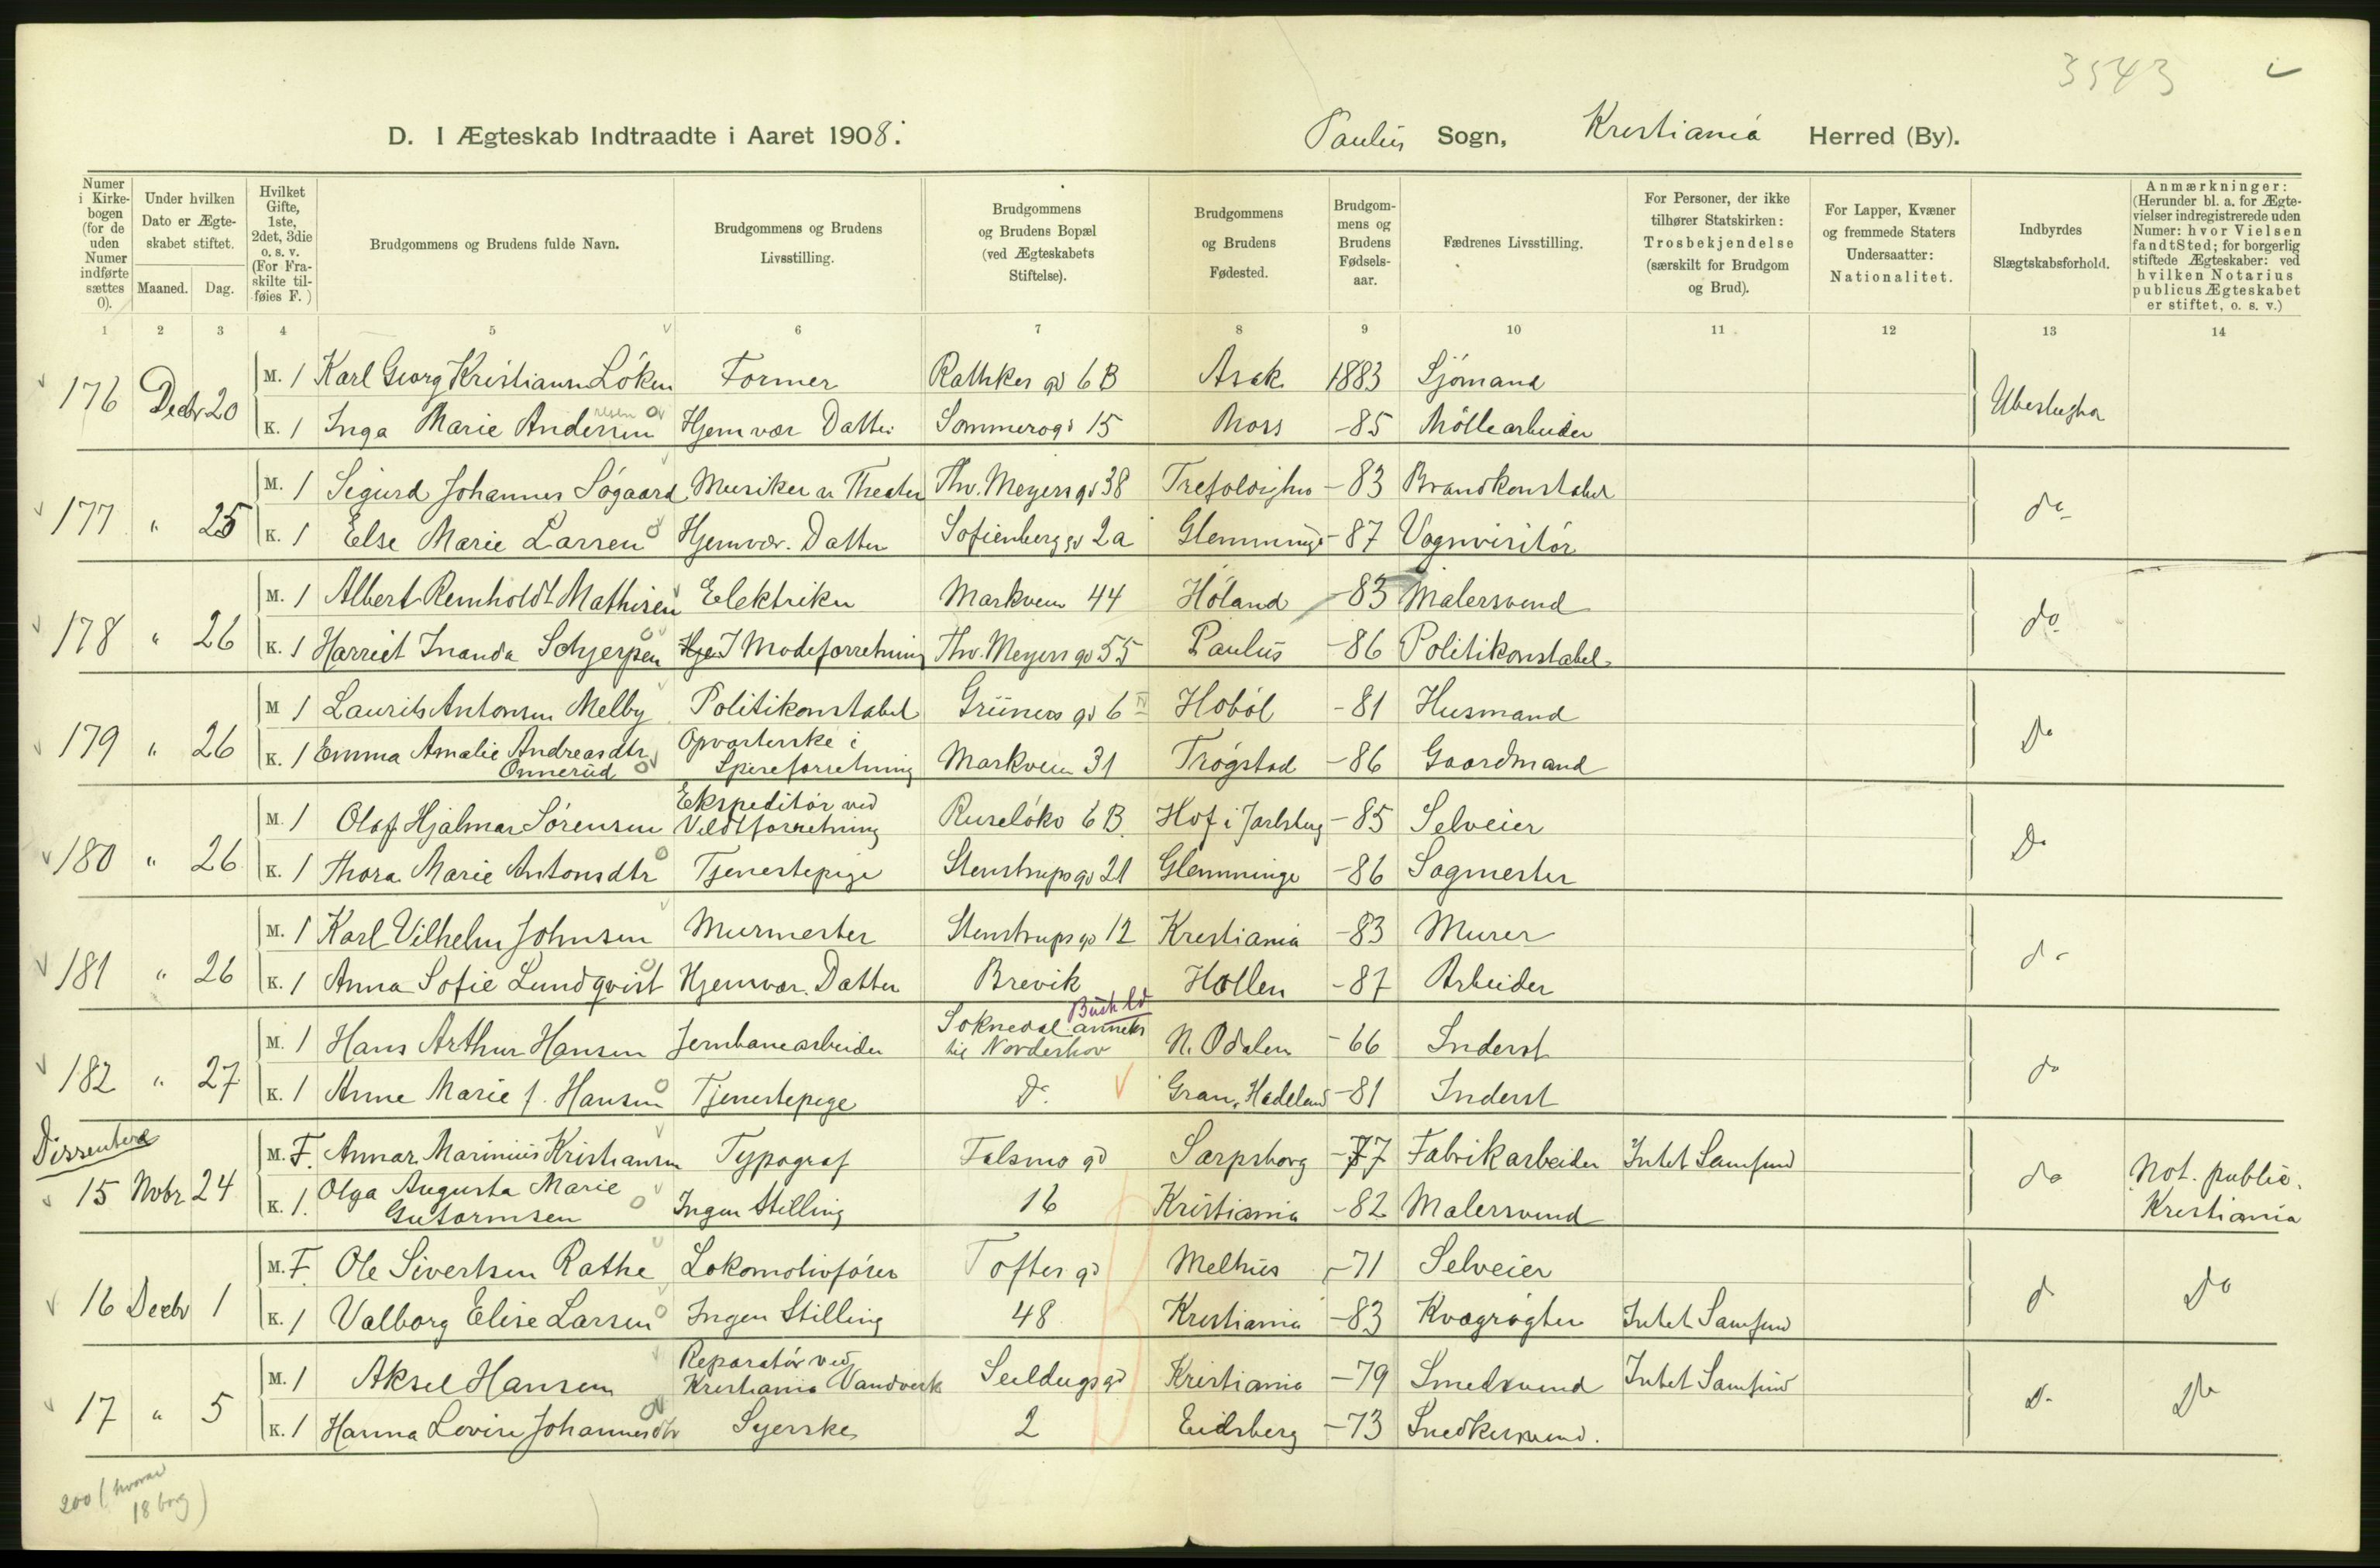 3543
D. I Ægteskab Indtraadte i Aaret 1908. Paulus Sogn, Kristiania Herred (By).
Numer i Kirkebogen (for de uden Numer indførte sættes 0).
Under hvilken Dato er Ægteskabet stiftet.
Maaned. Dag.
Hvilket Gifte, 1ste, 2det, 3die o. s. v. (For Fraskilte tilføies F.)
Brudgommens og Brudens fulde Navn.
Brudgommens og Brudens Livsstilling.
Brudgommens og Brudens Bopæl (ved Ægteskabets Stiftelse).
Brudgommens og Brudens Fødested.
Brudgommens og Brudens Fødselsaar.
Fædrenes Livsstilling.
For Personer, der ikke tilhører Statskirken: Trosbekjendelse (særskilt for Brudgom og Brud).
For Lapper, Kvæner og fremmede Staters Undersaatter: Nationalitet.
Indbyrdes Slægtskabsforhold.
Anmærkninger: (Herunder bl. a. for Ægtevielser indregistrerede uden Numer: hvor Vielsen fandt Sted; for borgerlig stiftede Ægteskaber: ved hvilken Notarius publicus Ægteskabet er stiftet, o. s. v.)
1 2 3 4 5 6 7 8 9 10 11 12 13 14
176 Decbr 20 M. 1 Karl Georg Kristiansen Löken Former Rathkes gd 6 B Asak 1883 Sjömand Ubeslegtet
K. 1 Inga Marie Andersen Hjemvær Datter Sommerogd 15 Moss -85 Möllearbeider
177 " 25 M. 1 Sigurd Johannes Sögaard Musiker v. Theater Thv. Meyers gd 38 Trefoldighed -83 Brandkonstabel do
K. 1 Else Marie Larsen Hjemvær. Datter Sofienberg gd 2a Glemminge -87 Vognvisitör
178 " 26 M. 1 Albert Reinholdt Mathisen Elektriker Markveien 44 Höland -83 Malersvend do
K. 1 Harriet Inanda Schjerpen I Modeforretning Thv. Meyers gd 55 Paulus -86 Politikonstabel
179 " 26 M 1 Laurits Antonsen Melby Politikonstabel Grüners gd 6 IV Haaböl -81 Husmand Do
K. 1 Emma Amalie Andreasdtr Onnerud Opvarterske i Spiseforretning Markveien 31 Trögstad -86 Gaardmand
180 " 26 M. 1 Olaf Hjalmar Sörensen Ekspeditör ved Vildtforretning Ruselökv 6 B. Hof i Jarlsberg -85 Selveier Do
K. 1 Thora Marie Antonsdtr Tjenestepige Stenstrups gd 21 Glemminge -86 Sagmester
181 " 26 M. 1 Karl Vilhelm Johnsen Murmester Stenstrups gd 12 Kristiania -83 Murer do
K. 1 Anna Sofie Lundqvist Hjemvær. Datter Brevik Hollen -87 Arbeider
182 " 27 M. 1 Hans Arthur Hansen Jernbanearbeider Soknedal anneks til Norderhov Busk N. Odalen -66 Inderst do
K. 1 Anne Marie f. Hansen Tjenestepige Do. Gran, Hadeland -81 Inderst
Dissentere
15 Novbr 24 M. F. Annar Marinius Kristiansen Typograf Falsens gd Sarpsborg -77 Fabrikarbeider Intet Samfund do Not. public. Kristiania
K. 1. Olga Augusta Marie Gutormsen Ingen Stilling 16 Kristiania -82 Malersvend
16 Decbr 1 M. F. Ole Sivertsen Rathe Lokomotivförer Toftes gd Melhus -71 Selveier do Do
K. 1 Valborg Elise Larsen Ingen Stilling 48 Kristiania -83 Kvægrögter Intet Samfund
17 " 5 M. 1 Aksel Hansen Reparatör ved Kristiania Vandverk Seildugs gd Kristiania -79 Smedsvend Intet Samfund Do Do
K. 1 Hanna Lovise Johannesdtr Syerske 2 Eidsberg -73 Snedkersvend.
200 (hvorav 18 borg)